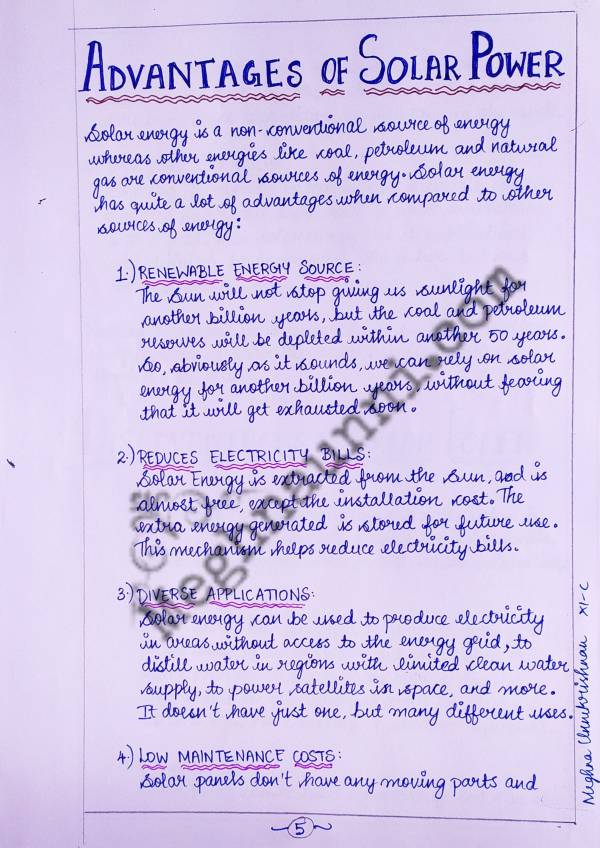 ADVANTAGES OF SOLAR POWER
Solar energy is a non-conventional source of energy
whereas other energies like coal, petroleum and natural
gas are conventional sources of energy. Solar energy
has quite a lot of advantages when compared to other
sources of energy:
1.) RENEWABLE ENERGY SOURCE:
The Sun will not stop giving us sunlight for
another billion years, but the coal and petroleum
reserves will be depleted within another 50 years.
So, obviously as it sounds, we can rely on solar
energy for another billion years, without fearing
that it will get exhausted soon.
2.) REDUCES ELECTRICITY BILLS:
Solar Energy is extracted from the Sun, and is
almost free, except the installation cost. The
extra energy generated is stored for future use.
This mechanism helps reduce electricity bills.
3.) DIVERSE APPLICATIONS:
Solar energy can be used to produce electricity
in areas without access to the energy grid, to
distill water in regions with limited clean water
supply, to power satellites in space, and more.
It doesn't have just one, but many different uses.
4.) LOW MAINTENANCE COSTS:
Solar panels don't have any moving parts and
5
Meghna Unnikrishnan XI-C